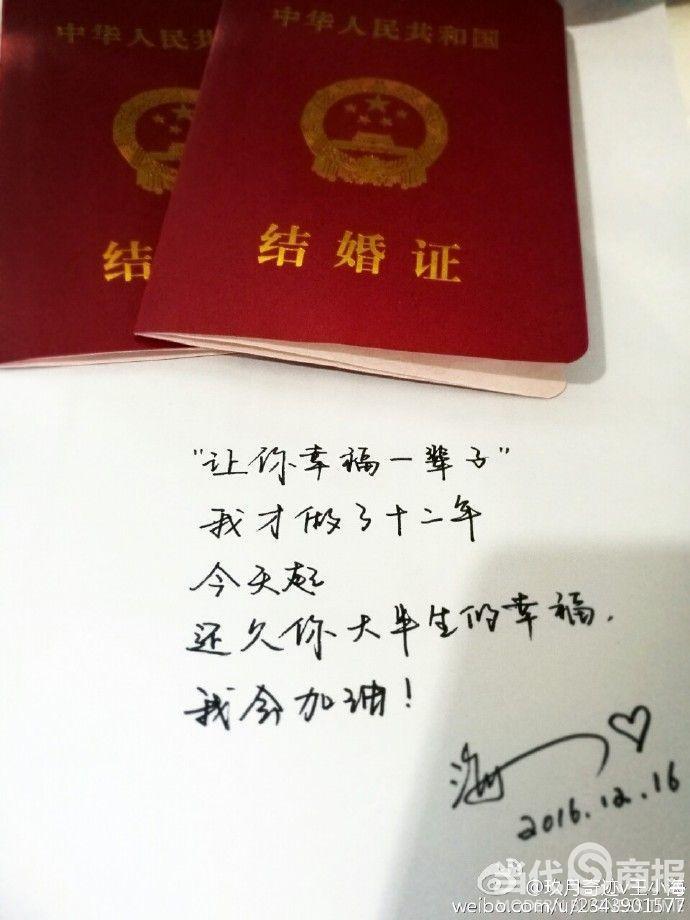 中华人民共
中华人民共和国
结
结婚证
"让你幸福一辈子"
我才做了十二年
今天起
还久你大半生的幸福.
我会加油!
海
2016.12.16
当代商报
@玖月奇迹V王小海
weibo.com/u/2343901577